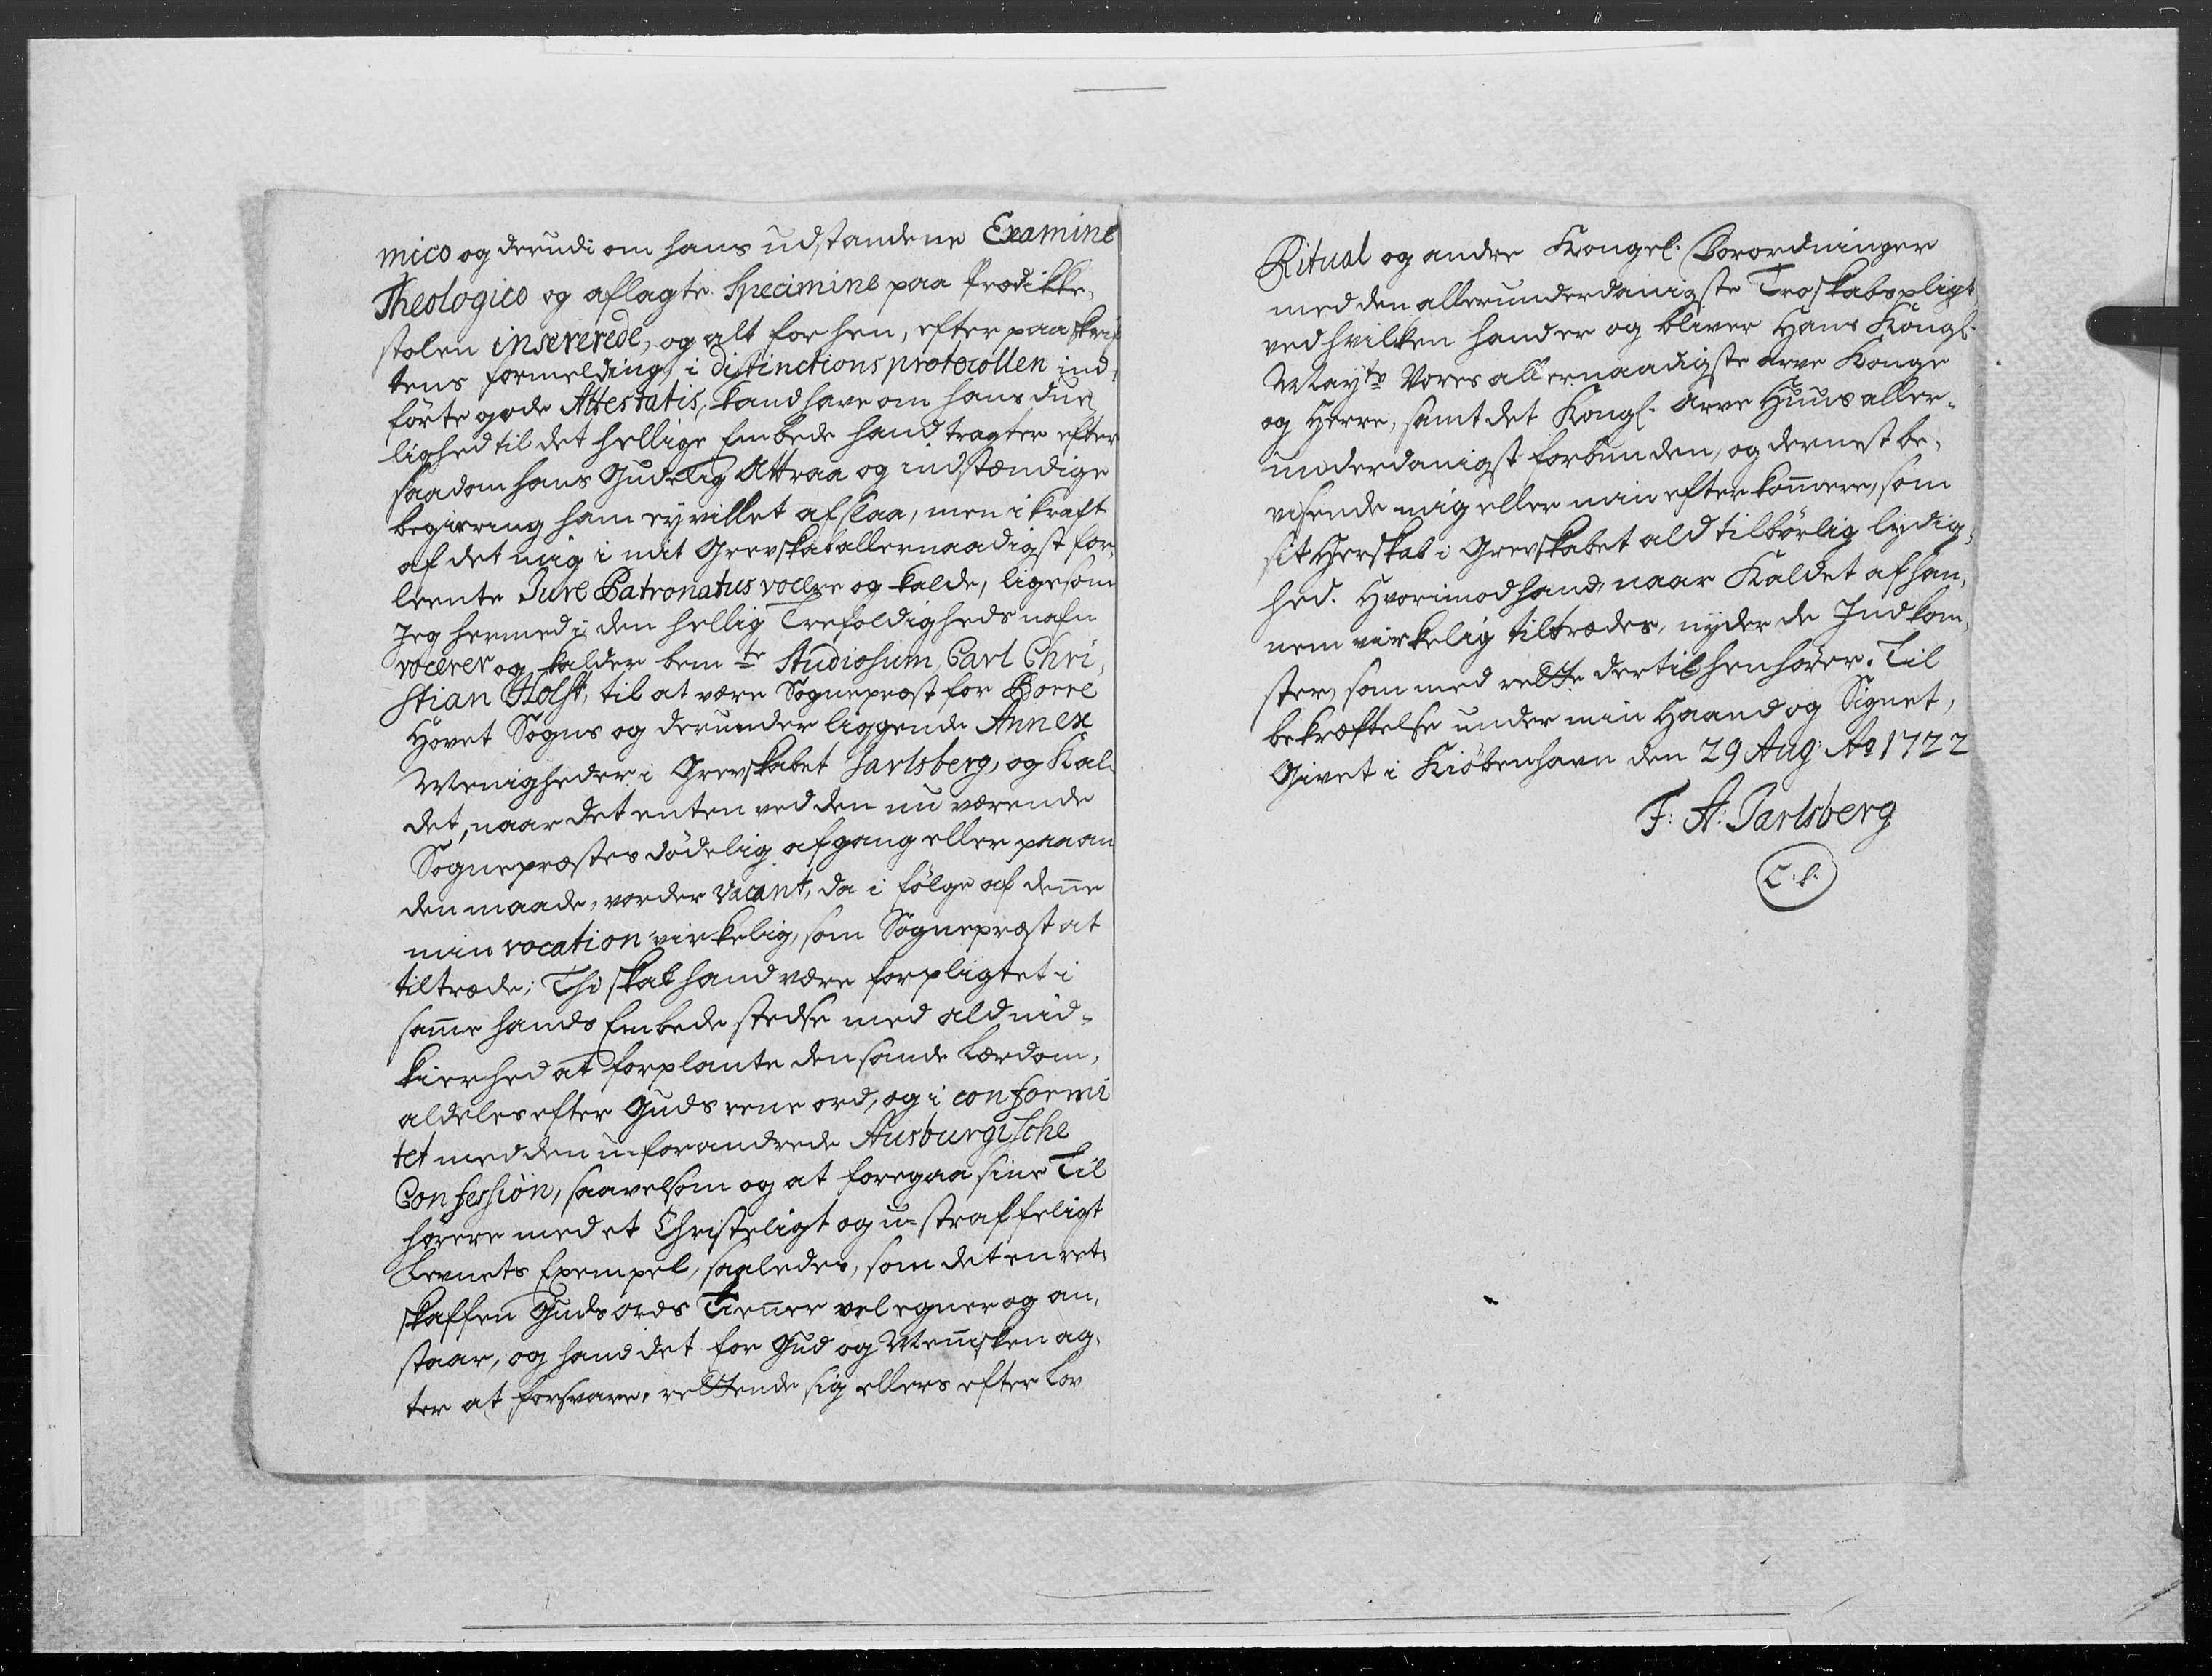 mico og derudi om hans udstandene Examine
Theologico og aflagte Specimine paa Prædikke,
stolen insererede, og alt forhen, efter paaskrif
tens formelding, i distinctions protocollen ind,
förte gode Attestatis, kand have om hans due,
lighed til det hellige Embede hand tragter efter
saadom hans Gudelig Attraa og indstændige
begiering ham ey villet afslaa, men i kraft
af det mig i mit Grevskab allernaadigst for,
leente Jure Patronatus vocere og kalde, ligesom
Jeg hermed i den hellig Trefoldigheds nafn
vocerer og kalder bemte Studiosum, Carl Chri,
stian Holst, til at være Sognepræst for Borre
Hovet Sogns og derunder liggende Annex
Menigheder i Grevskabet Jarlsberg, og Kal,
det, naar det enten ved den nu værende
Sognepræstes dödelig afgang eller paa an
den maade, vorder vacant, da i fölge af dene
min vocation virkelig, som Sognepræst at
tiltræde; Thi skal hand være forpligtet i
same hands Embede stedse med ald nid-
kierhed at forplante den sande Lærdom,
aldeles efter Guds rene ord, og i conformi
tet med den u-forandrede Ausburgische
Confession, saavelsom og at foregaa sine Til
hörere med et Christeligt og u-straffeligt
Levnets Exempel, saaledes, som det en ret,
skaffen Guds ords Tiener vel egner og an,
staar, og hand det for Gud og Menisken ag,
ter at forsvare, rettende sig ellers efter Lov
Ritual og andre Kongel. Forordninger
med den allerunderdanigste Troskabspligt
ved hvilken hand er og bliver Hans Kongl.
Mayts Vores allernaadigste arve Konge
og Herre, samt det Kongl. Arve Huus aller-
underdanigst forbunden, og dernest be,
visende mig eller min efterkomere, som
sit Herskab i Grevskabet ald tilbörlig lydig,
hed. Hvorimod hand, naar Kaldet af han,
nem virkelig tiltrædes, nyder de Indkom,
ster, som med rette dertil henhörer. Til
bekræftelse under min Haand og Signet,
Givet i Kiöbenhavn den 29 Aug: Ao 1722
F: A: Jarlsberg
L. S.